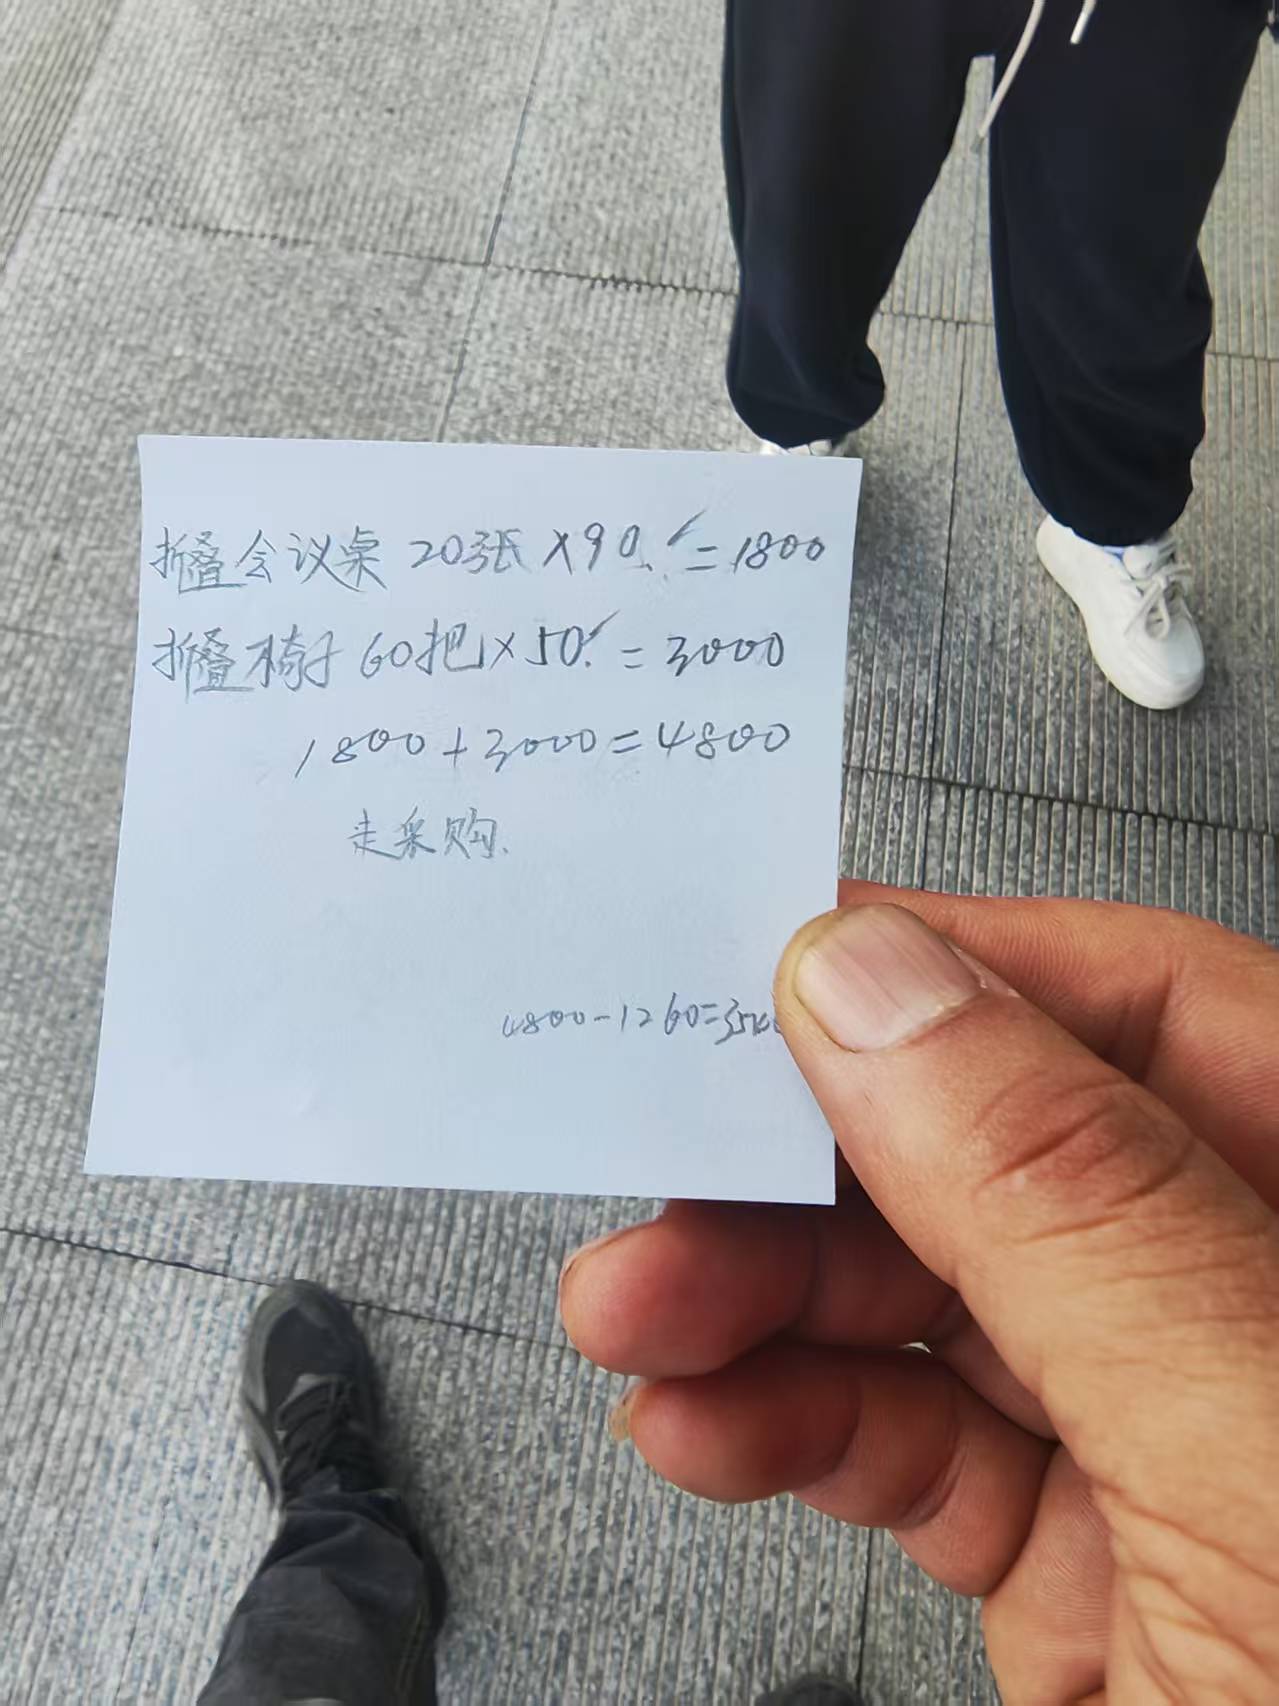 折叠会议桌 20张 ×90. ✓=1800
折叠椅子 60把×50.✓=3000
1800+3000=4800
走采购.
4800-1260=354